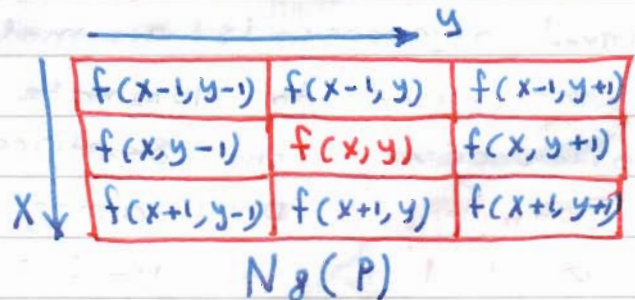 y
f(x-1, y-1) f(x-1, y) f(x-1, y+1)
f(x, y-1) f(x, y) f(x, y+1)
x f(x+1, y-1) f(x+1, y) f(x+1, y+1)
N8(P)